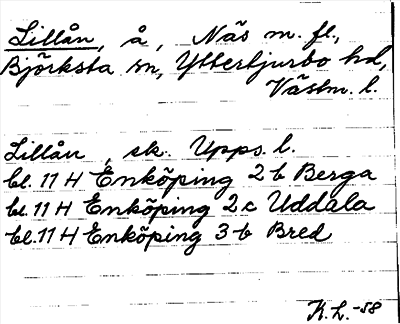 Lillån, å, Näs m. fl.,
Björksta sn, Yttertjurbo hd,
Västm. l.
Lillån, sk. Upps. l.
bl. 11 H Enköping 2 b Berga
bl. 11 H Enköping 2 c Uddala
bl. 11 H Enköping 3 b Bred
K.L.-58